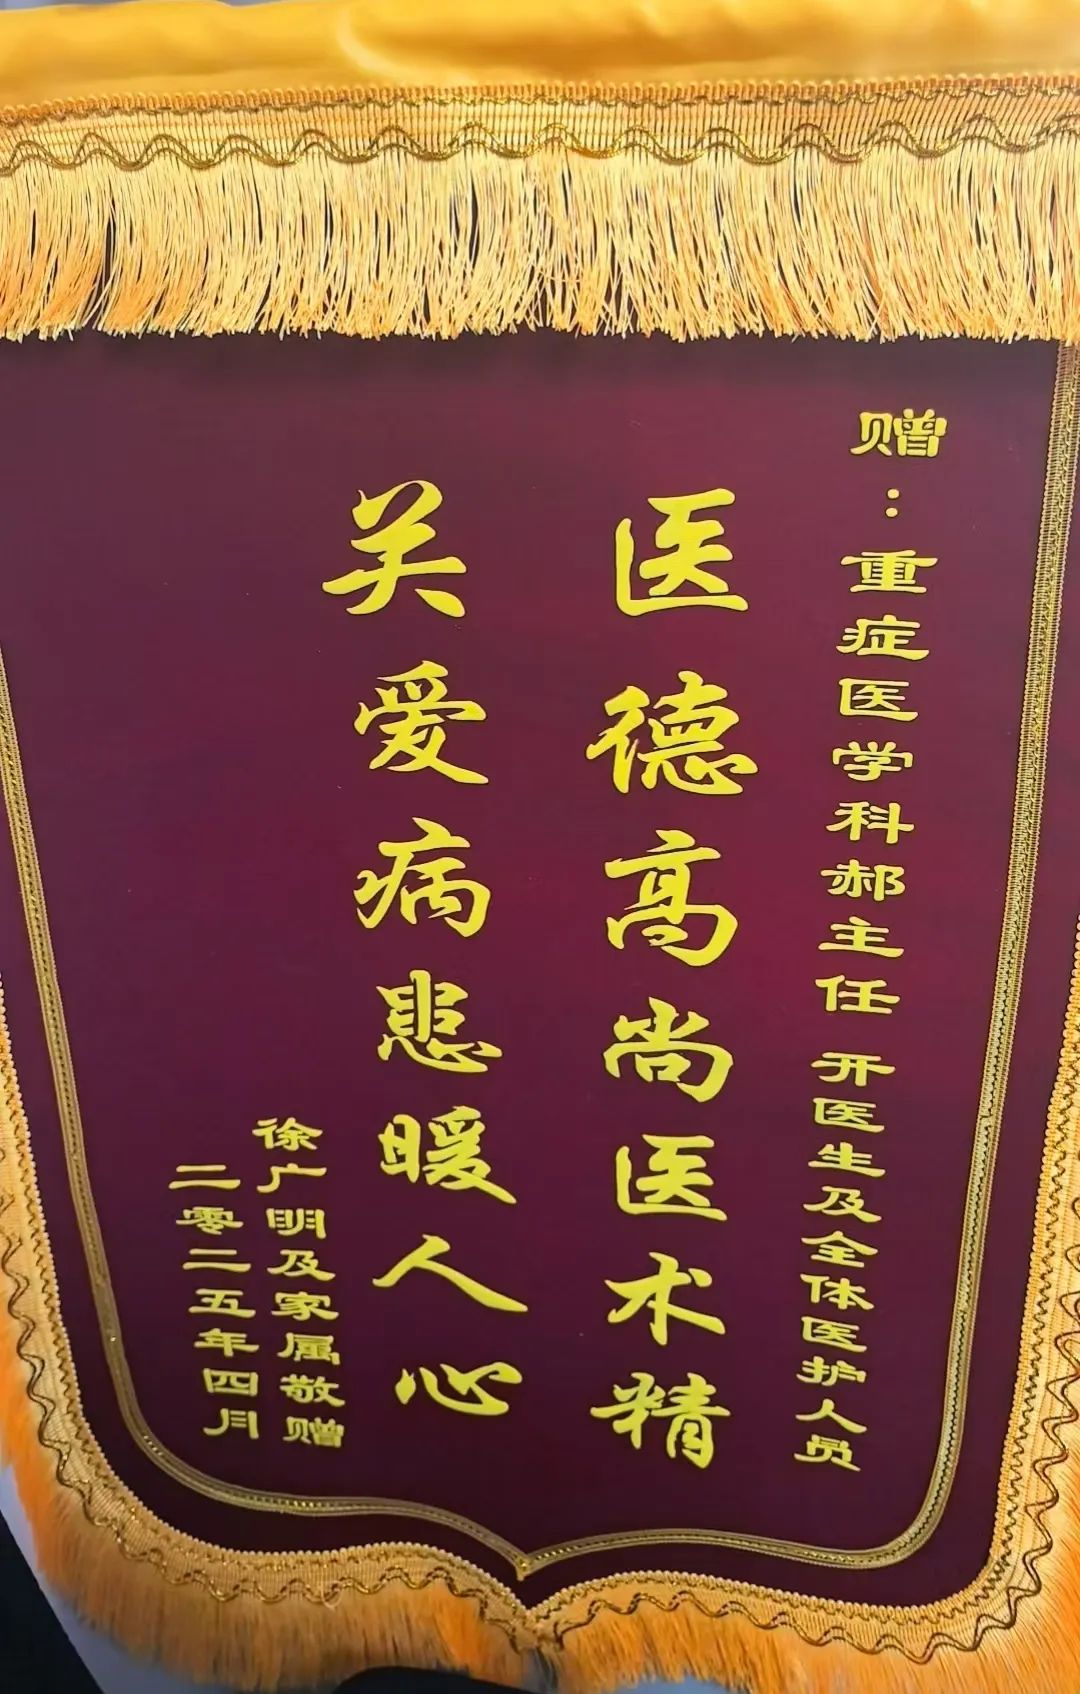 赠：重症医学科郝主任 开医生及全体医护人员
医德高尚医术精
关爱病患暖人心
徐广明及家属敬赠
二零二五年四月